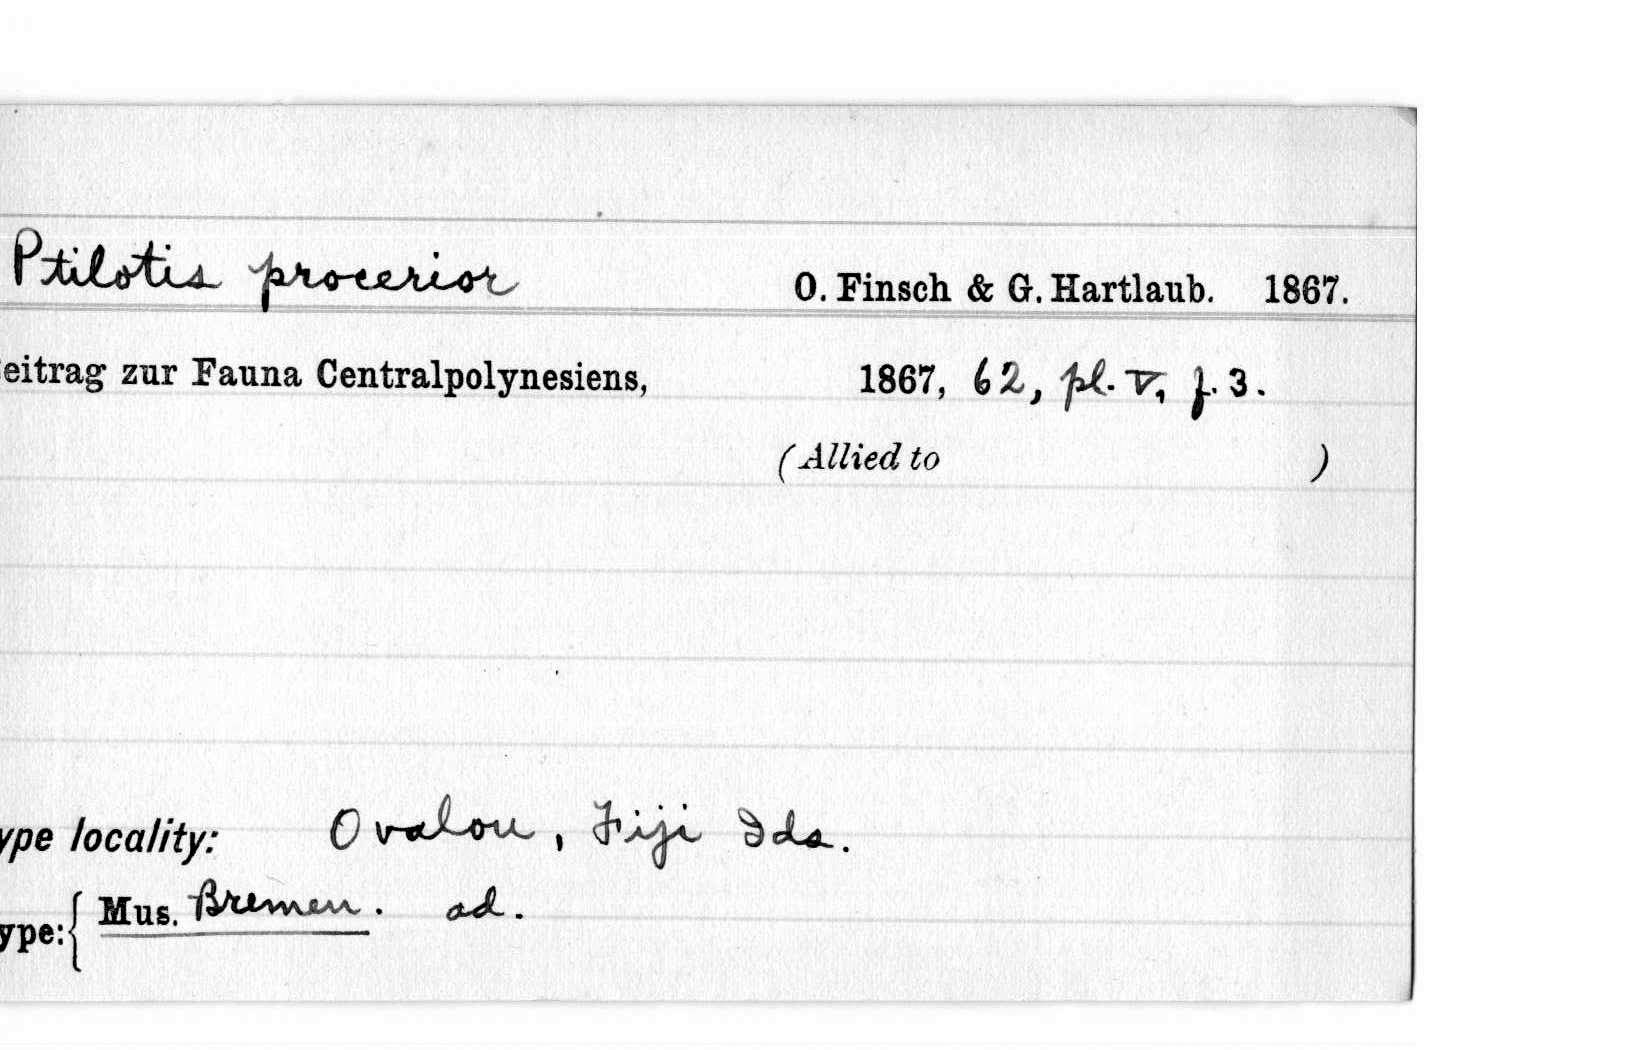 Ptilotis procerior O. Finsch & G. Hartlaub. 1867.
eitrag zur Fauna Centralpolynesiens, 1867, 62, pl. V, f. 3.
(Allied to )
ype locality: Ovalou, Fiji Ids.
ype: { Mus. Bremen. ad.